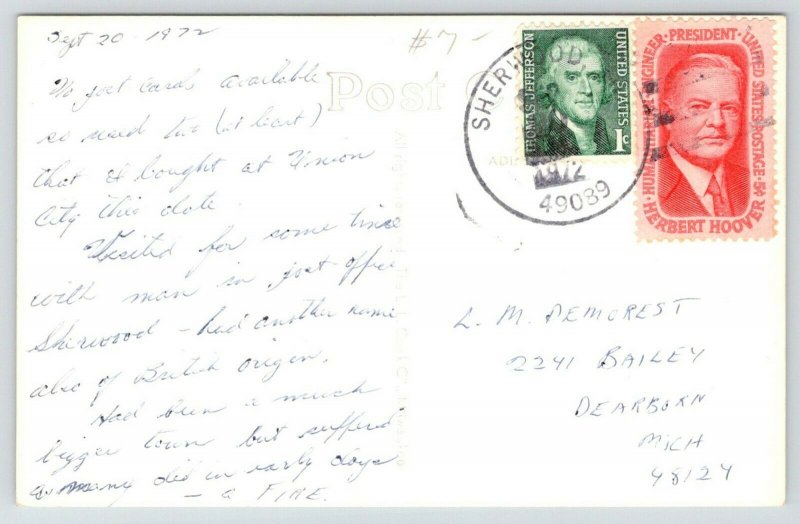 Sept 20-1972
#7-
No post cards available
so used two (at least)
that I bought at Union
City this date.
Visited for some time
with man in post office
Sherwood - had another name
also of British origin.
Had been a much
bigger town but suffered
as many did in early days
- a FIRE.
Post C
SHERWOOD
1972
49089
THOMAS JEFFERSON
UNITED STATES
1c
HUMANITARIAN·ENGINEER·PRESIDENT·UNITED STATES POSTAGE·5¢
HERBERT HOOVER
L. M. DEMOREST
2241 BAILEY
DEARBORN
MICH
48124